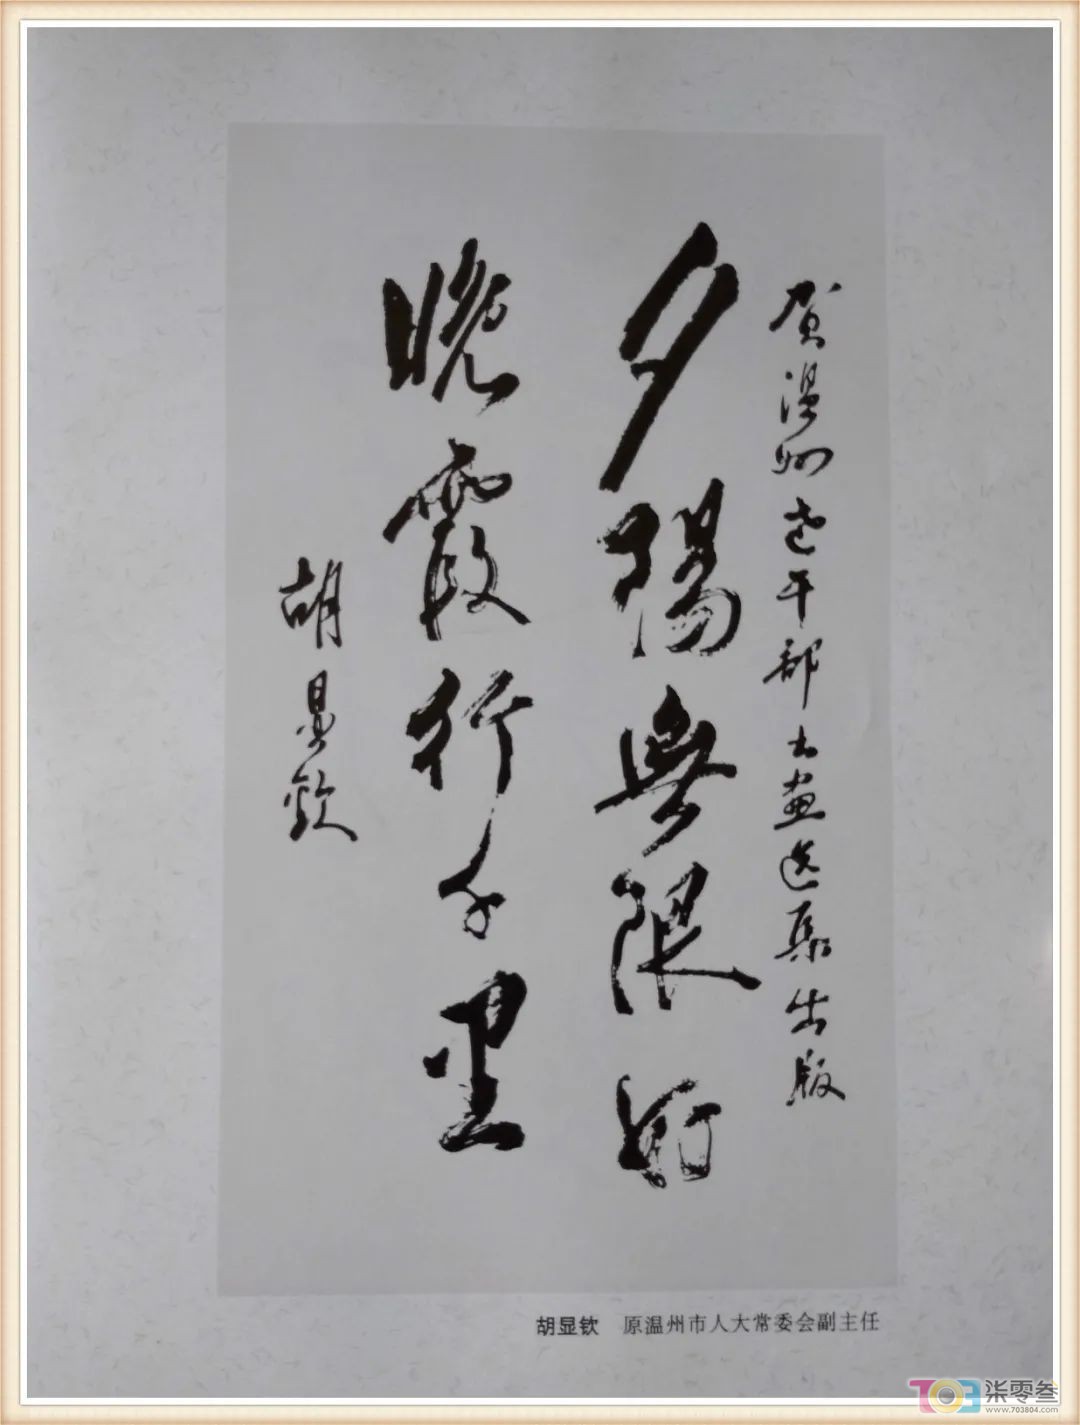 贺温州老干部书画选集出版
夕陽無限好
晚霞行千里
胡显钦
胡显钦 原温州市人大常委会副主任
703 柒零叁
www.703804.com